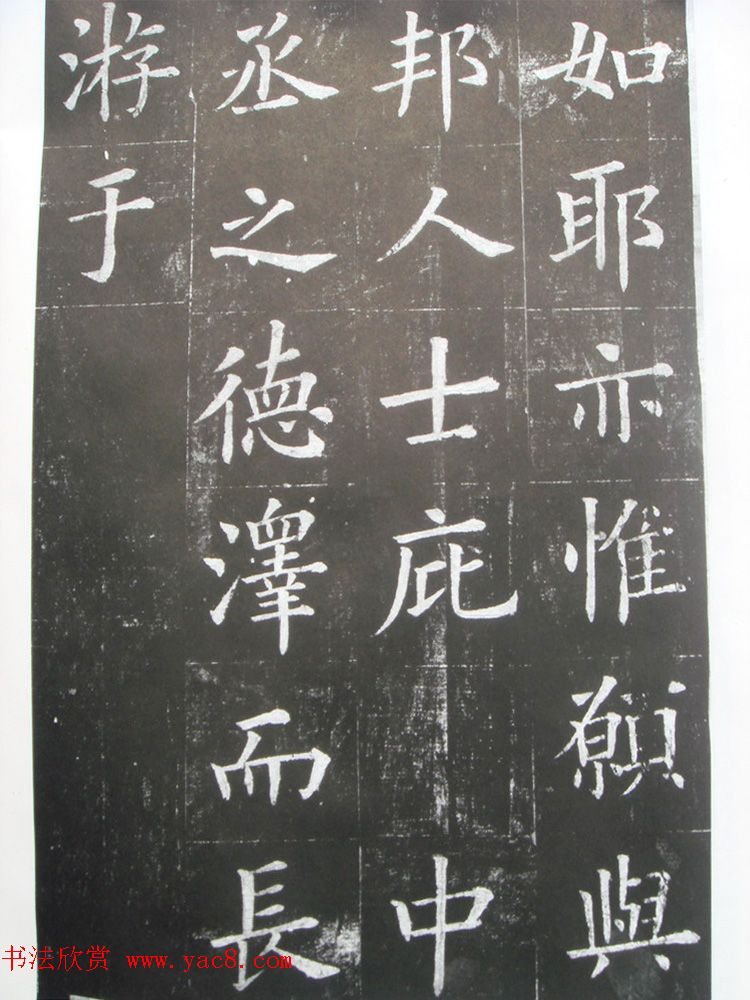 如耶亦惟願與
邦人士庇中
丞之德澤而長
游于
书法欣赏 www.yac8.com